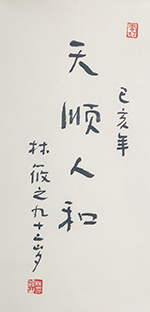 己亥年
天顺人和
林筱之九十二岁